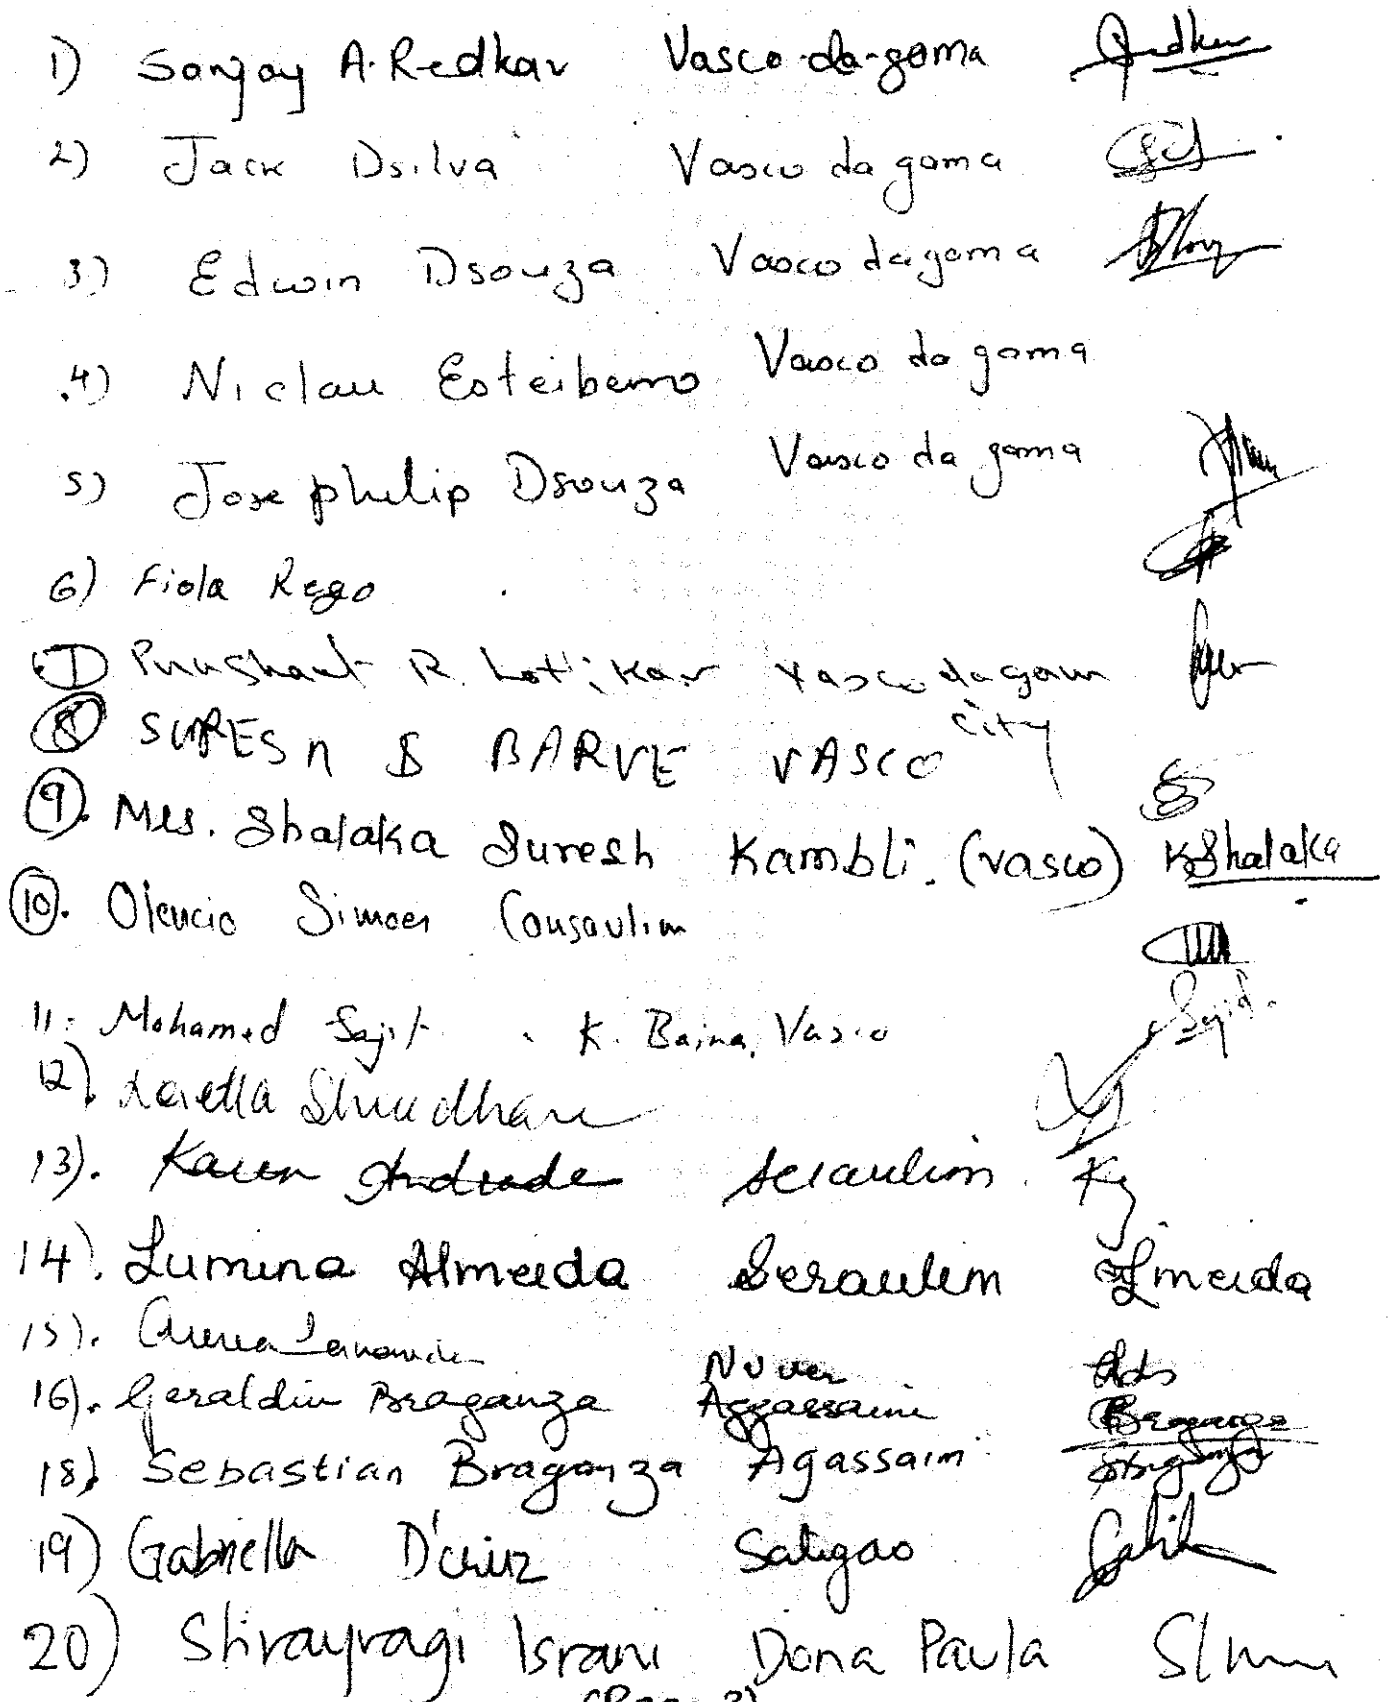 1) Sanjay A. Redkar Vasco-da-gama Redkar
2) Jack Dsilva Vasco da gama
3) Edwin Dsouza Vasco da gama
4) Niclau Esteibeiro Vasco da gama
5) Jose philip Dsouza Vasco da gama
6) Fiola Rego
7 Prashant R. Lotlikar Vasco da gam
city
8 SURESH S BARVE VASCO
9. Mrs. Shalaka Suresh Kambli. (vasco) KShalaka
10. Olencio Simoes Cansaulim
11. Mohamed Sajit K. Baina, Vasco Sajid.
12).
13). Karen Andrade Seraulim.
14). Lumina Almeida Seraulim Almeida
15).
16). Geraldin Braganza Aggassaim Braganza
18) Sebastian Braganza Agassaim
19) Gabriella D'cruz Saligao
20) Israni Dona Paula